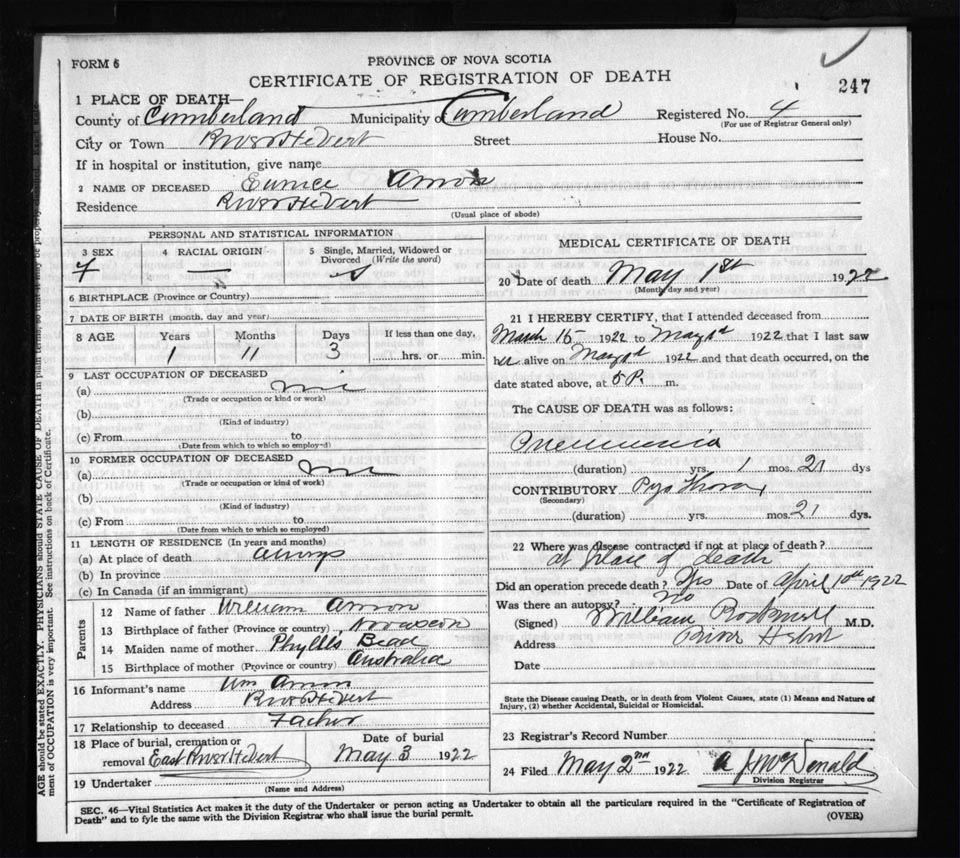 FORM 6
PROVINCE OF NOVA SCOTIA
CERTIFICATE OF REGISTRATION OF DEATH
247
1 PLACE OF DEATH—
County of Cumberland Municipality of Cumberland Registered No. 4
(For use of Registrar General only)
City or Town River Hebert Street House No.
If in hospital or institution, give name
2 NAME OF DECEASED Eunice Amon
Residence River Hebert
(Usual place of abode)
PERSONAL AND STATISTICAL INFORMATION
3 SEX 4 RACIAL ORIGIN 5 Single, Married, Widowed or Divorced (Write the word)
F — S
6 BIRTHPLACE (Province or Country)
7 DATE OF BIRTH (month, day and year)
8 AGE Years Months Days If less than one day,
1 11 3 hrs. or min.
9 LAST OCCUPATION OF DECEASED
(a)
(Trade or occupation or kind or work)
(b)
(Kind of industry)
(c) From to
(Date from which to which so employed)
10 FORMER OCCUPATION OF DECEASED
(a)
(Trade or occupation or kind of work)
(b)
(Kind of industry)
(c) From to
(Date from which to which so employed)
11 LENGTH OF RESIDENCE (In years and months)
(a) At place of death always
(b) In province
(c) In Canada (if an immigrant)
Parents
12 Name of father William Amon
13 Birthplace of father (Province or country)
14 Maiden name of mother Phyllis
15 Birthplace of mother (Province or country) Australia
16 Informant's name Wm Amon
Address River Hebert
17 Relationship to deceased Father
18 Place of burial, cremation or removal East River Hebert
Date of burial May 3 1922
19 Undertaker
(Name and Address)
MEDICAL CERTIFICATE OF DEATH
20 Date of death May 1st 1922
(Month, day and year)
21 I HEREBY CERTIFY, that I attended deceased from
March 15 1922 to May 1st 1922 that I last saw
her alive on May 1st 1922 and that death occurred, on the
date stated above, at 5 P. m.
The CAUSE OF DEATH was as follows:
Pneumonia
(duration) yrs. 1 mos. 21 dys
CONTRIBUTORY
(Secondary)
(duration) yrs. mos. 21 dys.
22 Where was disease contracted if not at place of death?
at place of death
Did an operation precede death? Yes Date of April 10th 1922
Was there an autopsy? no
(Signed) William Rockwell M.D.
Address River Hebert
Date
State the Disease causing Death, or in death from Violent Causes, state (1) Means and Nature of
Injury, (2) whether Accidental, Suicidal or Homicidal.
23 Registrar's Record Number
24 Filed May 2nd 1922 A J McDonald
Division Registrar
SEC. 46—Vital Statistics Act makes it the duty of the Undertaker or person acting as Undertaker to obtain all the particulars required in the "Certificate of Registration of
Death" and to fyle the same with the Division Registrar who shall issue the burial permit.
(OVER)
AGE should be stated EXACTLY. PHYSICIANS should STATE CAUSE OF DEATH in plain terms, so that it may be
ment of OCCUPATION is very important. See instructions on back of Certificate.